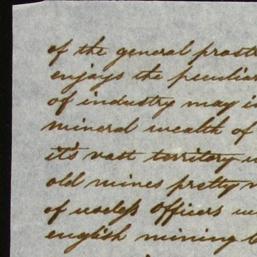 of the general prost
enjoys the peculiar
of industry may i
mineral wealth of
it's vast territory
old mines pretty
of useless officers
english mining